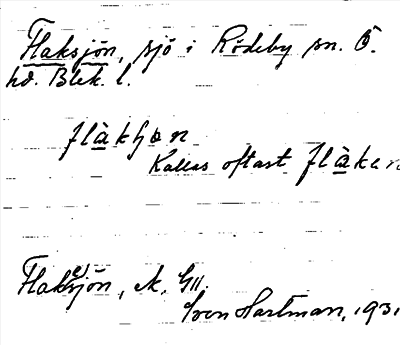 Flaksjön, sjö i Rödeby sn. Ö.
hd. Blek. l.
flàkʃơn
Kallas oftast flàkan
Flaksjön, 
Sven Hartman, 1931